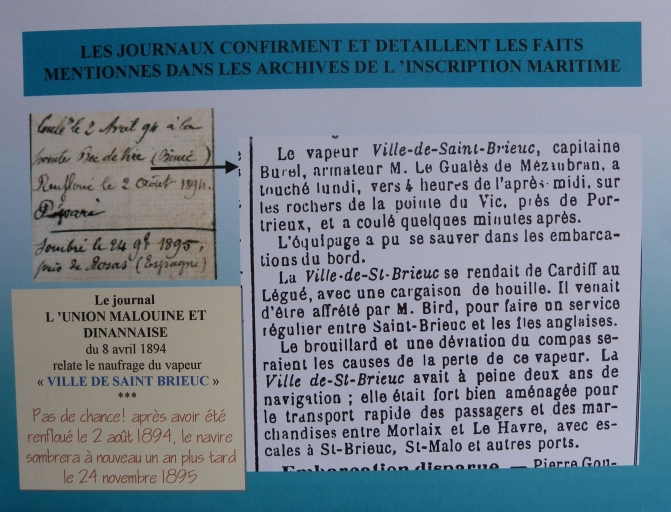 LES JOURNAUX CONFIRMENT ET DETAILLENT LES FAITS
MENTIONNES DANS LES ARCHIVES DE L 'INSCRIPTION MARITIME
Coulé le 2 Avril 94 à la
pointe Bec de Vir (Binic)
Renfloué le 2 Août 1894.
Réparé
Sombré le 24 9bre 1895,
près de Rosas (Espagne)
Le vapeur Ville-de-Saint-Brieuc, capitaine
Burel, armateur M. Le Gualès de Mézaubran, a
touché lundi, vers 4 heures de l'après-midi, sur
les rochers de la pointe du Vic, près de Por-
trieux, et a coulé quelques minutes après.
L'équipage a pu se sauver dans les embarca-
tions du bord.
La Ville-de-St-Brieuc se rendait de Cardiff au
Légué, avec une cargaison de houille. Il venait
d'être affrété par M. Bird, pour faire un service
régulier entre Saint-Brieuc et les îles anglaises.
Le brouillard et une déviation du compas se-
raient les causes de la perte de ce vapeur. La
Ville de-St-Brieuc avait à peine deux ans de
navigation ; elle était fort bien aménagée pour
le transport rapide des passagers et des mar-
chandises entre Morlaix et Le Havre, avec es-
cales à St-Brieuc, St-Malo et autres ports.
Embarcation disparue. — Pierre Gou-
Le journal
L 'UNION MALOUINE ET
DINANNAISE
du 8 avril 1894
relate le naufrage du vapeur
« VILLE DE SAINT BRIEUC »
***
Pas de chance! après avoir été
renfloué le 2 août 1894, le navire
sombrera à nouveau un an plus tard
le 24 novembre 1895